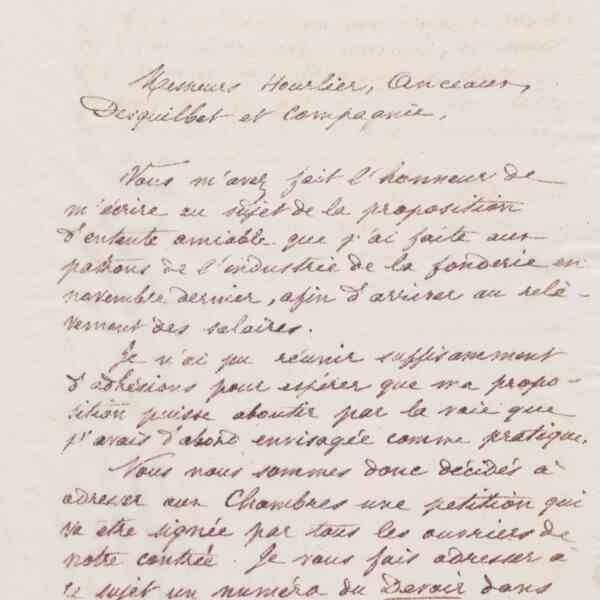 Messieurs Hourlier, Anceaux,
Desquilbet et Compagnie.
Vous m'avez fait l'honneur de
m'écrire au sujet de la proposition
d'entente amiable que j'ai faite aux
patrons de l'industrie de la fonderie en
novembre dernier, afin d'arriver au relè-
vement des salaires.
Je n'ai pu réunir suffisamment
d'adhésions pour espérer que ma propo-
sition puisse aboutir par la voie que
j'avais d'abord envisagée comme pratique.
Nous nous sommes donc décidés à
adresser aux Chambres une petition qui
va etre signée par tous les ouvriers de
notre contrée. Je vous fais adresser à
ce sujet un numéro du Devoir dans